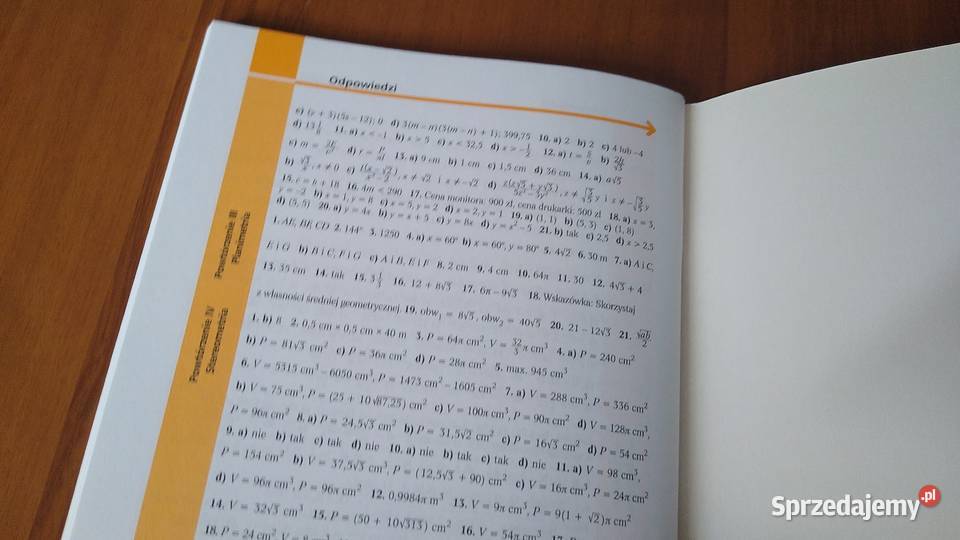 Odpowiedzi
c) (y + 3)(5x − 12); 0 d) 3(m − n)(3(m − n) + 1); 399,75 10. a) 2 b) 2 c) 4 lub −4
d) 13 1/8 11. a) x < −1 b) x > 5 c) x < 32,5 d) x > −1/2 12. a) t = s/v
13. a) 9 cm b) 1 cm c) 1,5 cm d) 36 cm 14. a) a√5
15. c = n + 18 16. 4m < 290 17. Cena monitora: 900 zł, cena drukarki: 500 zł 18. a) x = 3,
y = −2 b) x = 1, y = 8 c) x = 5, y = 2 d) x = 2, y = 1 19. a) (1, 1) b) (5, 3) c) (1, 8)
d) (5, 5) 20. a) y = 4x b) y = x + 5 c) y = 8x d) y = x² − 5 21. b) tak c) 2,5 d) x > 2,5
Powtórzenie III
Planimetria
1. AE, BF, CD 2. 144° 3. 1250 4. a) x = 60° b) x = 60°, y = 80° 5. 4√2 6. 30 m 7. a) A i C,
E i G b) B i C, F i G c) A i B, E i F 8. 2 cm 9. 4 cm 10. 64π 11. 30 12. 4√3 + 4
13. 35 cm 14. tak 15. 3 1/3 16. 12 + 8√3 17. 6π − 9√3 18. Wskazówka: Skorzystaj
z własności średniej geometrycznej. 19. obw₁ = 8√5, obw₂ = 40√5 20. 21 − 12√3 21. √ab/2
Powtórzenie IV
Stereometria
1. b) 8 2. 0,5 cm × 0,5 cm × 40 m 3. P = 64π cm², V = 32/3 π cm³ 4. a) P = 240 cm²
b) P = 81√3 cm² c) P = 36π cm² d) P = 28π cm² 5. max. 945 cm³
6. V = 5315 cm³ − 6050 cm³, P = 1473 cm² − 1605 cm² 7. a) V = 288 cm³, P = 336 cm²
b) V = 75 cm³, P = (25 + 10√87,25) cm² c) V = 100π cm³, P = 90π cm² d) V = 128π cm³,
P = 96π cm² 8. a) P = 24,5√3 cm² b) P = 31,5√2 cm² c) P = 16√3 cm² d) P = 54 cm²
9. a) nie b) tak c) tak d) nie 10. a) nie b) tak c) tak d) nie 11. a) V = 98 cm³,
P = 154 cm² b) V = 37,5√3 cm³, P = (12,5√3 + 90) cm² c) V = 16π cm³, P = 24π cm²
d) V = 96π cm³, P = 96π cm² 12. 0,9984π m³ 13. V = 9π cm³, P = 9(1 + √2)π cm²
14. V = 32√3 cm³ 15. P = (50 + 10√313) cm² 16. V = 54π cm³
18. P = 24 cm²
Sprzedajemy.pl